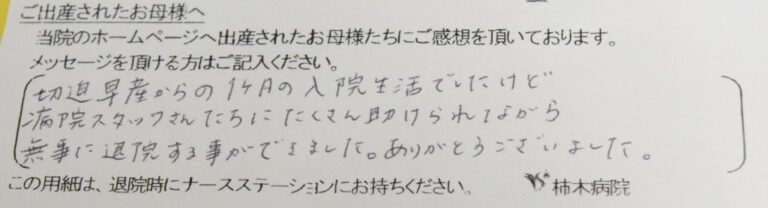 ご出産されたお母様へ
当院のホームページへ出産されたお母様たちにご感想を頂いております。
メッセージを頂ける方はご記入ください。
切迫早産からの1ヶ月の入院生活でしたけど
病院スタッフさんたちにたくさん助けられながら
無事に退院する事ができました。ありがとうございました。
この用紙は、退院時にナースステーションにお持ちください。 柿木病院